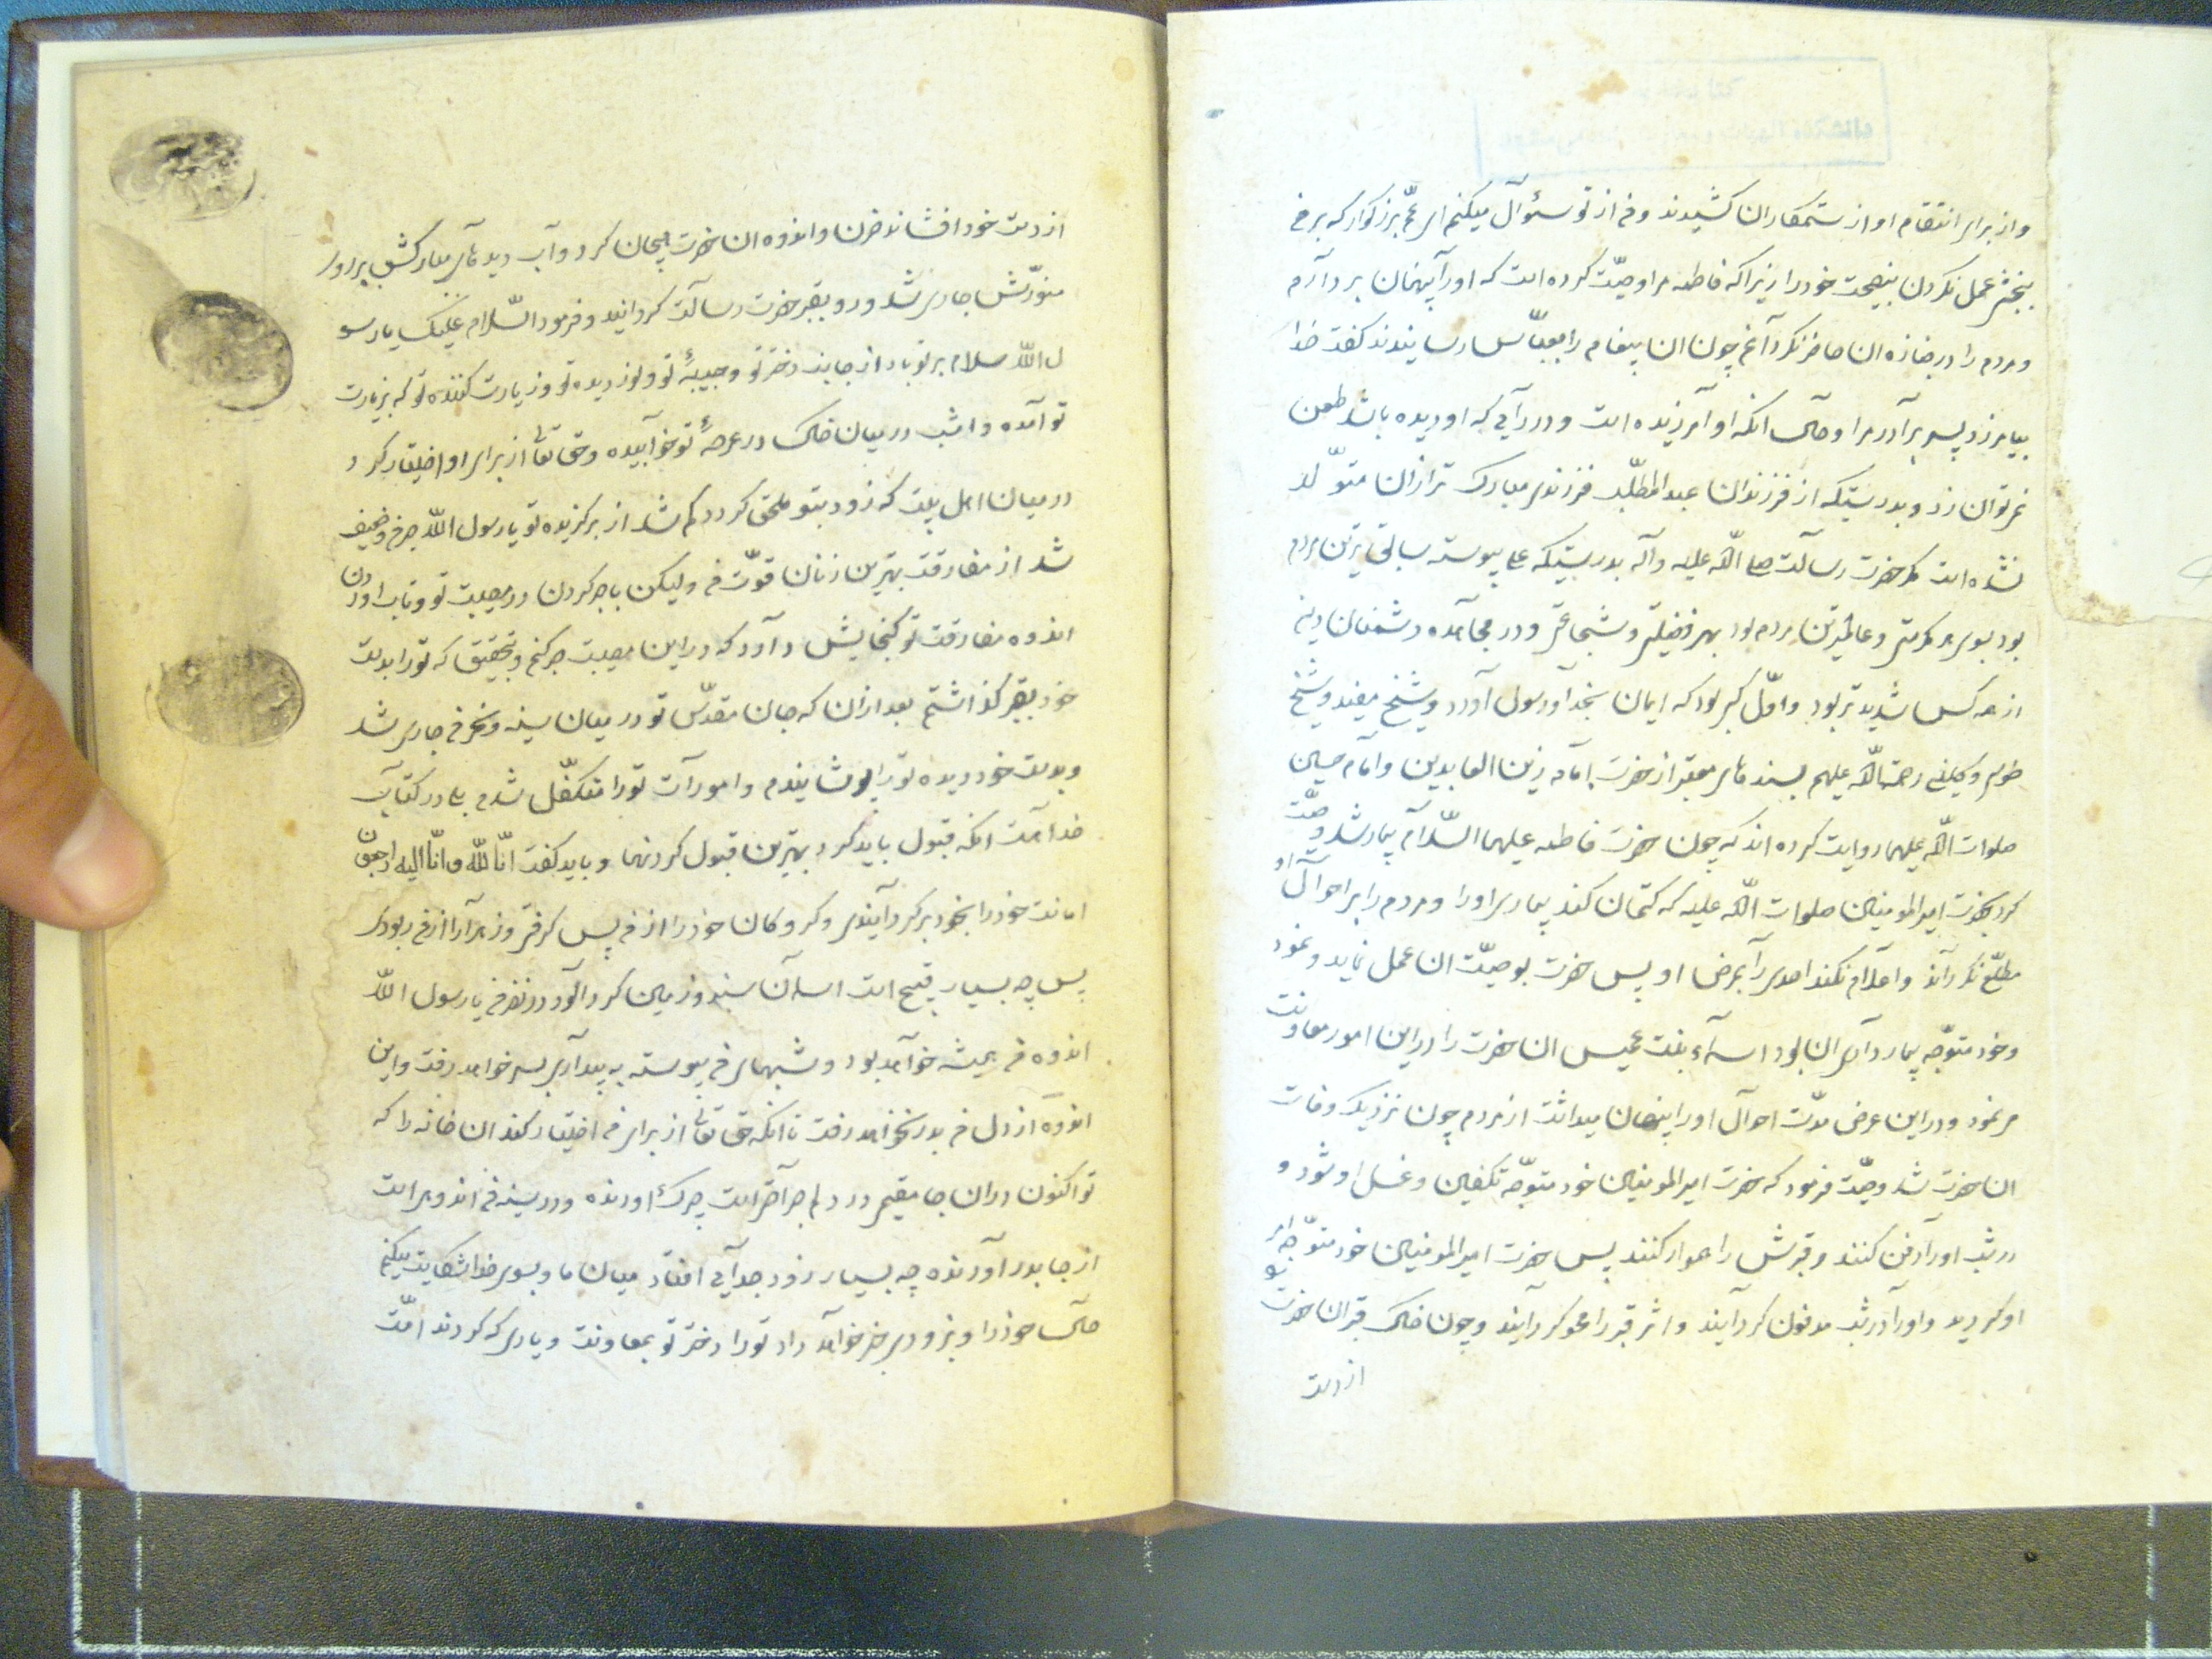 و از برای انتقام او از ستمکاران کشیدند و من از تو سئوآل میکنم ای عمّ بزرکوار که بر من
ببخشی عمل نکردن بنصیحت خود را زیرا که فاطمه مرا وصیّت کرده است که او را پنهان بردآرم
و مردم را در جنازه ان حاضر نکردآنم چون ان پیغام را بعبّاس رسایندند کفت خدا
بیامرزد پسر برآدر مرا و حآل انکه او آمرزیده است و در رآیی که او دیده باشد طعن
نمی توان زد و بدرستیکه از فرزندان عبدالمطلّب فرزندی مبارک تر از ان متوّلد
نشده است مکر حضرت رسآلت صلی اللّه علیه و آله بدرستیکه علی پیوسته سابق ترین مردم
بود بسوی هر مکرمتی و عالمترین مردم بود بهر فضیلتی و شجاعتر و در مجآهده دشمنان دین
از همه کس شدیدتر بود و اوّل کسی بود که ایمان بخدآ و رسول آورد و شیخ مفید و شیخ
طوسی و کلینی رحمة اللّه علیهم بسندهای معتبر از حضرت امآم زین العابدین و امآم حسین
صلوات اللّه علیهما روایت کرده اند که چون حضرت فاطمه علیهما السّلآم بیمار شد وصیّت
کرد بحضرت امیرالمومنین صلوات اللّه علیه که کتمان کند بیماری او را و مردم را بر احوآل او
مطلّع نکردآند و اعلآم نکند احدی رآ بمرض او پس حضرت بوصیّت ان عمل نماید و نمود
و خود متوّجه بیماردآری ان بود اسمآء بنت عمیس ان حضرت را در این امور معاونت
می نمود و در این عرض مدّت احوآل او را پنهان میداشت از مردم چون نزدیک وفات
ان حضرت شد وصیّت فرمود که حضرت امیرالمومنین خود متوّجه تکفین و غسل او شود و
در شب او رآ دفن کنند و قبرش را هموار کنند پس حضرت امیرالمومنین خود متوّجه امر
او کردید و او رآ در شب مدفون کردآیند و اثر قبر را محو کردآیند و چون خاک قبر ان حضرت
از دست
از دست خود افشاند حزن و اندوه ان حضرت هیجان کرد و آب دیدهآی مبارکش بر روی
منوّرش جاری شد و رو بقبر حضرت رسآلت کردانید و فرمود السّلام علیک یا رسو
ل اللّه سلام بر تو باد از جانب دختر تو و حبیبهٔ تو و نور دیده تو و زیارت کننده تو که بزیارت
تو آمده و امشب در میان خاک در عرصهٔ تو خوآبیده و حق تعآلی از برای او اختیار کرد
در میان اهل بیت که زود بتو ملحق کردد کم شد از برکزیده تو یا رسول اللّه صبر من و ضعیف
شد از مفارقت بهترین زنان قوّت من و لیکن با صبر کردن در مصیبت تو و تاب آوردن
اندوه مفارقت تو کنجایش دآرد که در این مصیبت صبر کنم و بتحقیق که تو را بدست
خود بقبر کذاشتم بعد از ان که جان مقدّس تو در میان سینه و نحر من جاری شد
و بدست خود دیده تو را پوشایندم و امورآت تو را متکفّل شدم بلی در کتآب
خدا هست انکه قبول باید کرد بهترین قبول کردنها و باید کفت انّا للّه و انّا الیه راجعون
امانت خود را بخود برکردآیندی و کروکان خود را از من پس کرفتی و زهرآ را از من ربودی
پس چه بسیار قبیح است اسمآن سبز و زمین کردآلود در نظر من یا رسول اللّه
اندوه من همیشه خوآهد بود و شبهای من پیوسته به بیدآری بسر خواهد رفت و این
اندوه از دل من بدر نخواهد رفت تا انکه حق تعالی از برای من اختیار کند ان خانه را که
تو اکنون در ان جا مقیمی در دلم جراحتی است چرک اورنده و در سینه من اندوهی است
از جا بدر آورنده چه بسیار زود جدآیی افتاد میان ما و بسوی خدا شکایت میکنم
حآل خود را و بزودی خبر خوآهد داد تو را دختر تو بمعاونت و یاری که کردند امّت